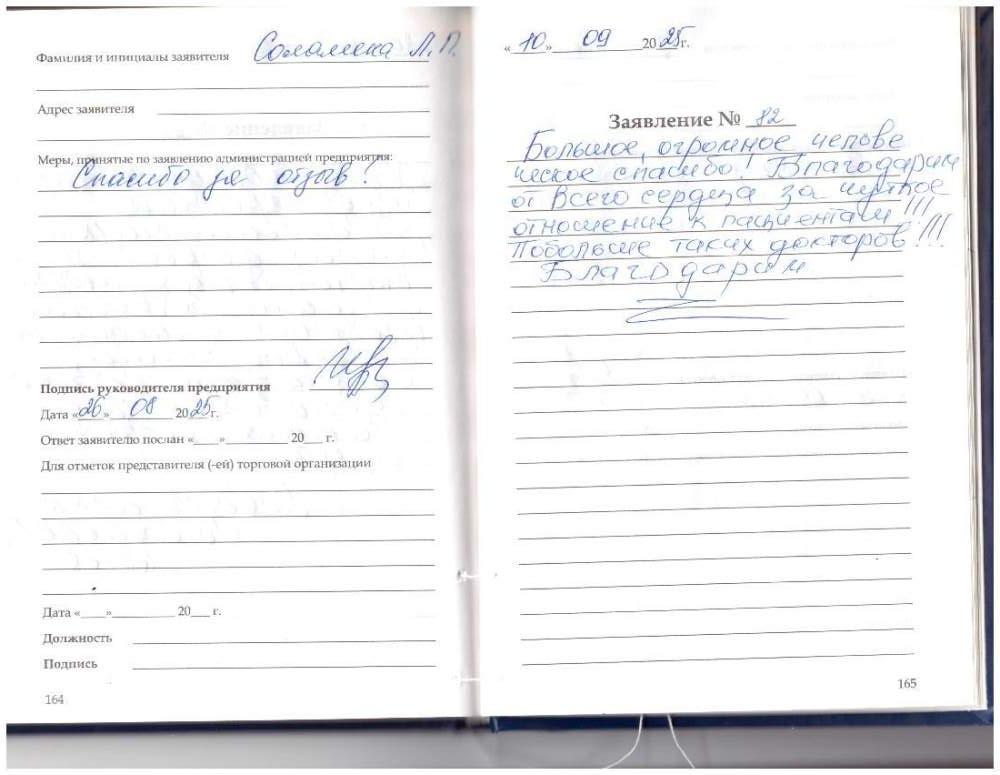 Фамилия и инициалы заявителя Соломека Л.П.
Адрес заявителя
Меры, принятые по заявлению администрацией предприятия:
Спасибо за отзыв!
Подпись руководителя предприятия
Дата «26» 08 2025 г.
Ответ заявителю послан «___»__________ 20___ г.
Для отметок представителя (-ей) торговой организации
Дата «____»__________ 20___ г.
Должность
Подпись
164
«10» 09 2025г.
Заявление № 82
Большое, огромное челове
ческое спасибо! Благодарим
от всего сердца за чуткое
отношение к пациентам!!!
Побольше таких докторов!!!
Благодарим
165